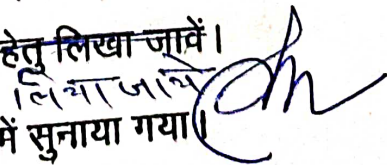 हेतु लिखा जावें।
लिया जाये
में सुनाया गया।